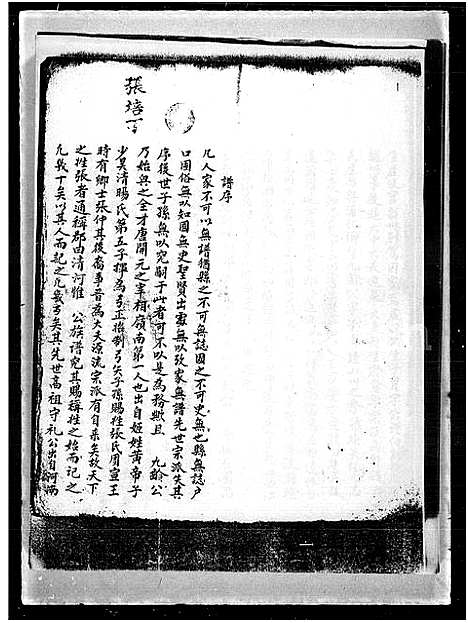 譜序
凡人家不可以無譜猶縣之不可無誌國之不可史無也縣無誌戶
口國俗無以知國無史聖賢出處無以攷家無譜先世宗派失其
序後世子孫無以究嗣于此者可不以是為務歟且 九齡公
乃始興之全才唐開元之宰相嶺南第一人也出自姬姓黃帝子
少昊清陽氏第五子揮為弓正始制弓矢子孫賜姓張氏周宣王
時有卿士張仲其後裔事晉為大夫源流宗派有自來矣故天下
之姓張者通稱郡由清河惟 公族譜究其賜稱姓之始而記之
九幾丁矣以其人而記之九幾弓矣其先世高祖守礼公出自河南
張培